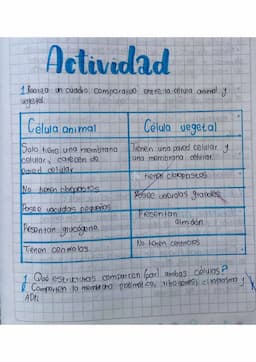 Actividad
1. Realiza un cuadro comparativo entre la célula animal y
vegetal
Célula animal
Solo tiene una membrana
celular, carecen de
pared celular
No tienen cloroplastos
Posee vacuolas pequeñas
Presentan glucógeno
Tienen centriolos
Célula vegetal
Tienen una pared celular y
una membrana celular
tienen cloroplastos
Posee vacuolas grandes
Presentan
almidón
No tienen centriolos
1. Qué estructuras comparten (par) ambas células?
Comparten la membrana plasmática, ribosomas, citoplasma y
ADN